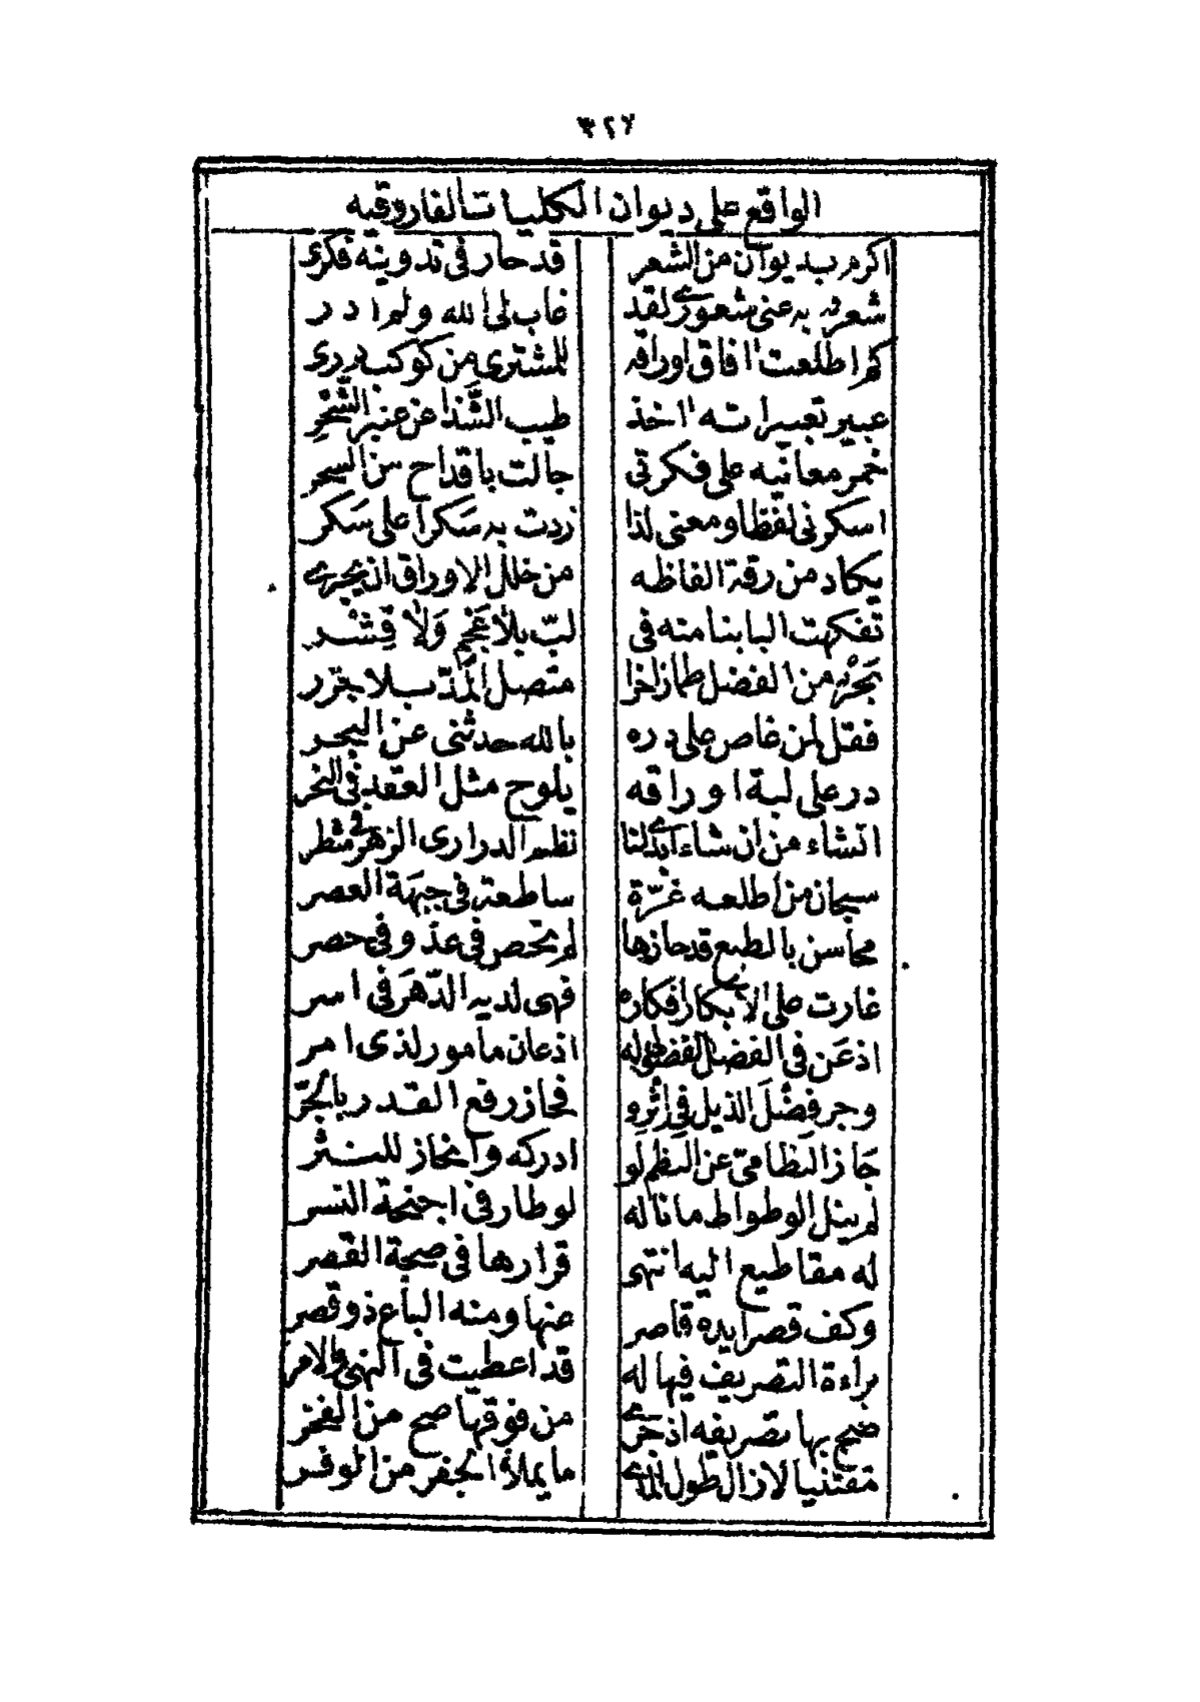 ٣٢٧
الواقع على ديوان الكليات الفاروقيه
اكرم بديوان من الشعر قد حار في تدوينه فكرى
شعرت به عنى شعورى لقد غاب لى الله ولم ادر
كم اطلعت افاق اوراقه للمشترى من كوكب درى
عبير تعبيراته اخذ طيب الشَّذا عن عنبر الشَّحْرِ
خمر معانيه على فكرتى جالت باقداح من السحر
اسكرنى لفظا ومعنى لذا زدت به سَكرا على سَكر
يكاد من رقة الفاظه من خلل الاوراق ان يجرى
تفكهت البابنا منه في لبّ بلا عَجْمٍ وَلا قِشْر
بَحْر من الفضل طما زاخرا متصل المَدّ بلا جزر
فقل لمن غاص على دره بالله حدثنى عن البحر
در على لبة اوراقه يلوح مثل العقد في النحر
انشاء من ان شاء ابدى لنا نظم الدرارى الزهر في نثر
سبحان من اطلعه غرّة ساطعة في جبهَة العصر
محاسن بالطبع قد حازها لم تحص في عدّ وفي حصر
غارت على الابكار افكاره فهى لديه الدّهرَ في اسر
اذعَن في الفضل الفضولى له اذعان مامور لذى امر
وجر فضْلَ الذيل في اثره فحاز رفع القدر بالجرّ
جَاز النظامىّ عن النظم لو ادركه وانحاز للنثر
لم ينل الوطواط ما ناله لو طار في اجنحة النسر
له مقاطيع اليه انتهى قرارها في صحة القصر
وكف قصر ايده قاصر عنها ومنه الباع ذو قصر
براءة التصريف فيها له قد اعطيت في النهى والامر
صح بها تصريفه اذ جرى من فوقها صح من الفخر
مقتنيا لازال طول المدى ما يملأ الجفر من الوفر